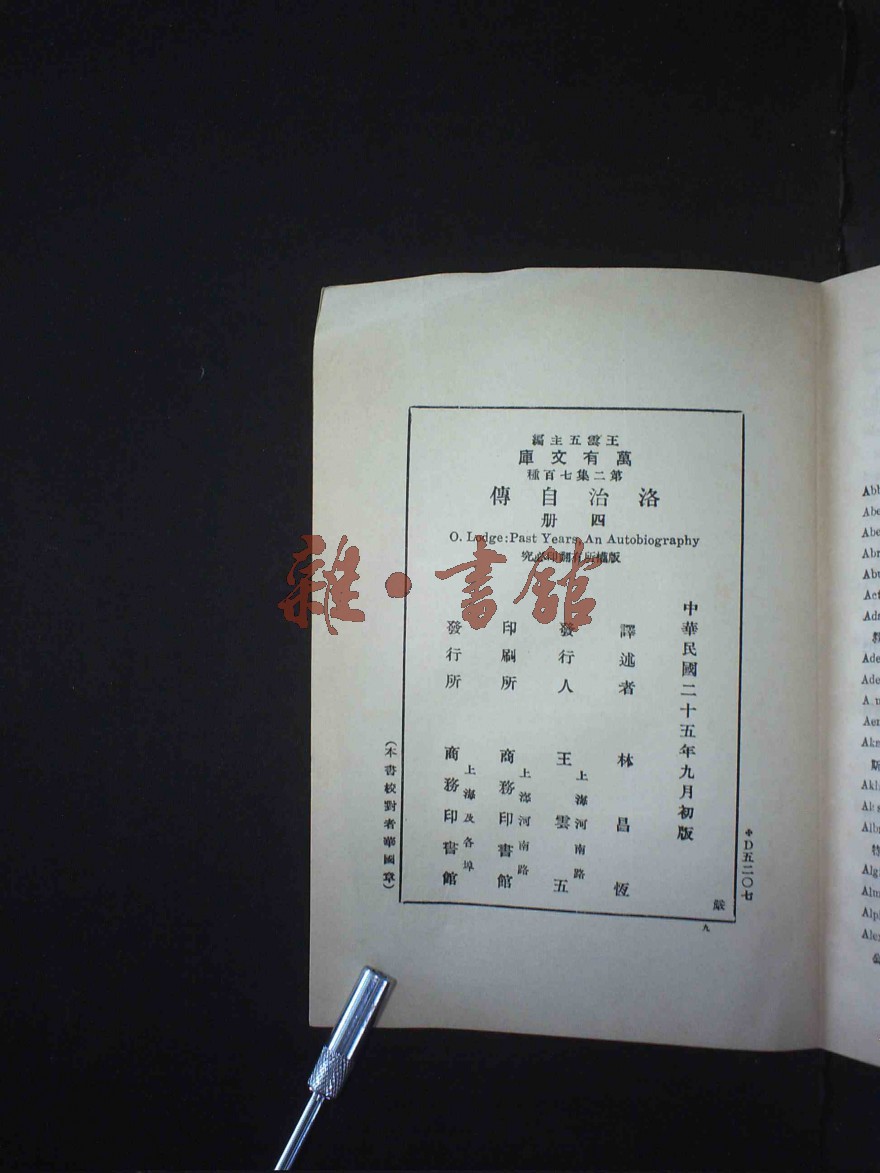 王雲五主編
萬有文庫
第二集七百種
洛治自傳
四册
O. Lodge: Past Years, An Autobiography
版權所有翻印必究
中華民國二十五年九月初版
譯述者 林昌恆
發行人 王雲五
上海河南路
印刷所 商務印書館
上海河南路
發行所 商務印書館
上海及各埠
(本書校對者華國章)
*D五二〇七
嚴
九
雜·書館
Abb
Abe
Abe
Abr
Abu
Act
Ada
Ade
Ade
A u
Aer
Akn
斯
Akl
Ak s
Albr
特
Alg
Alu
Alph
Alex
公